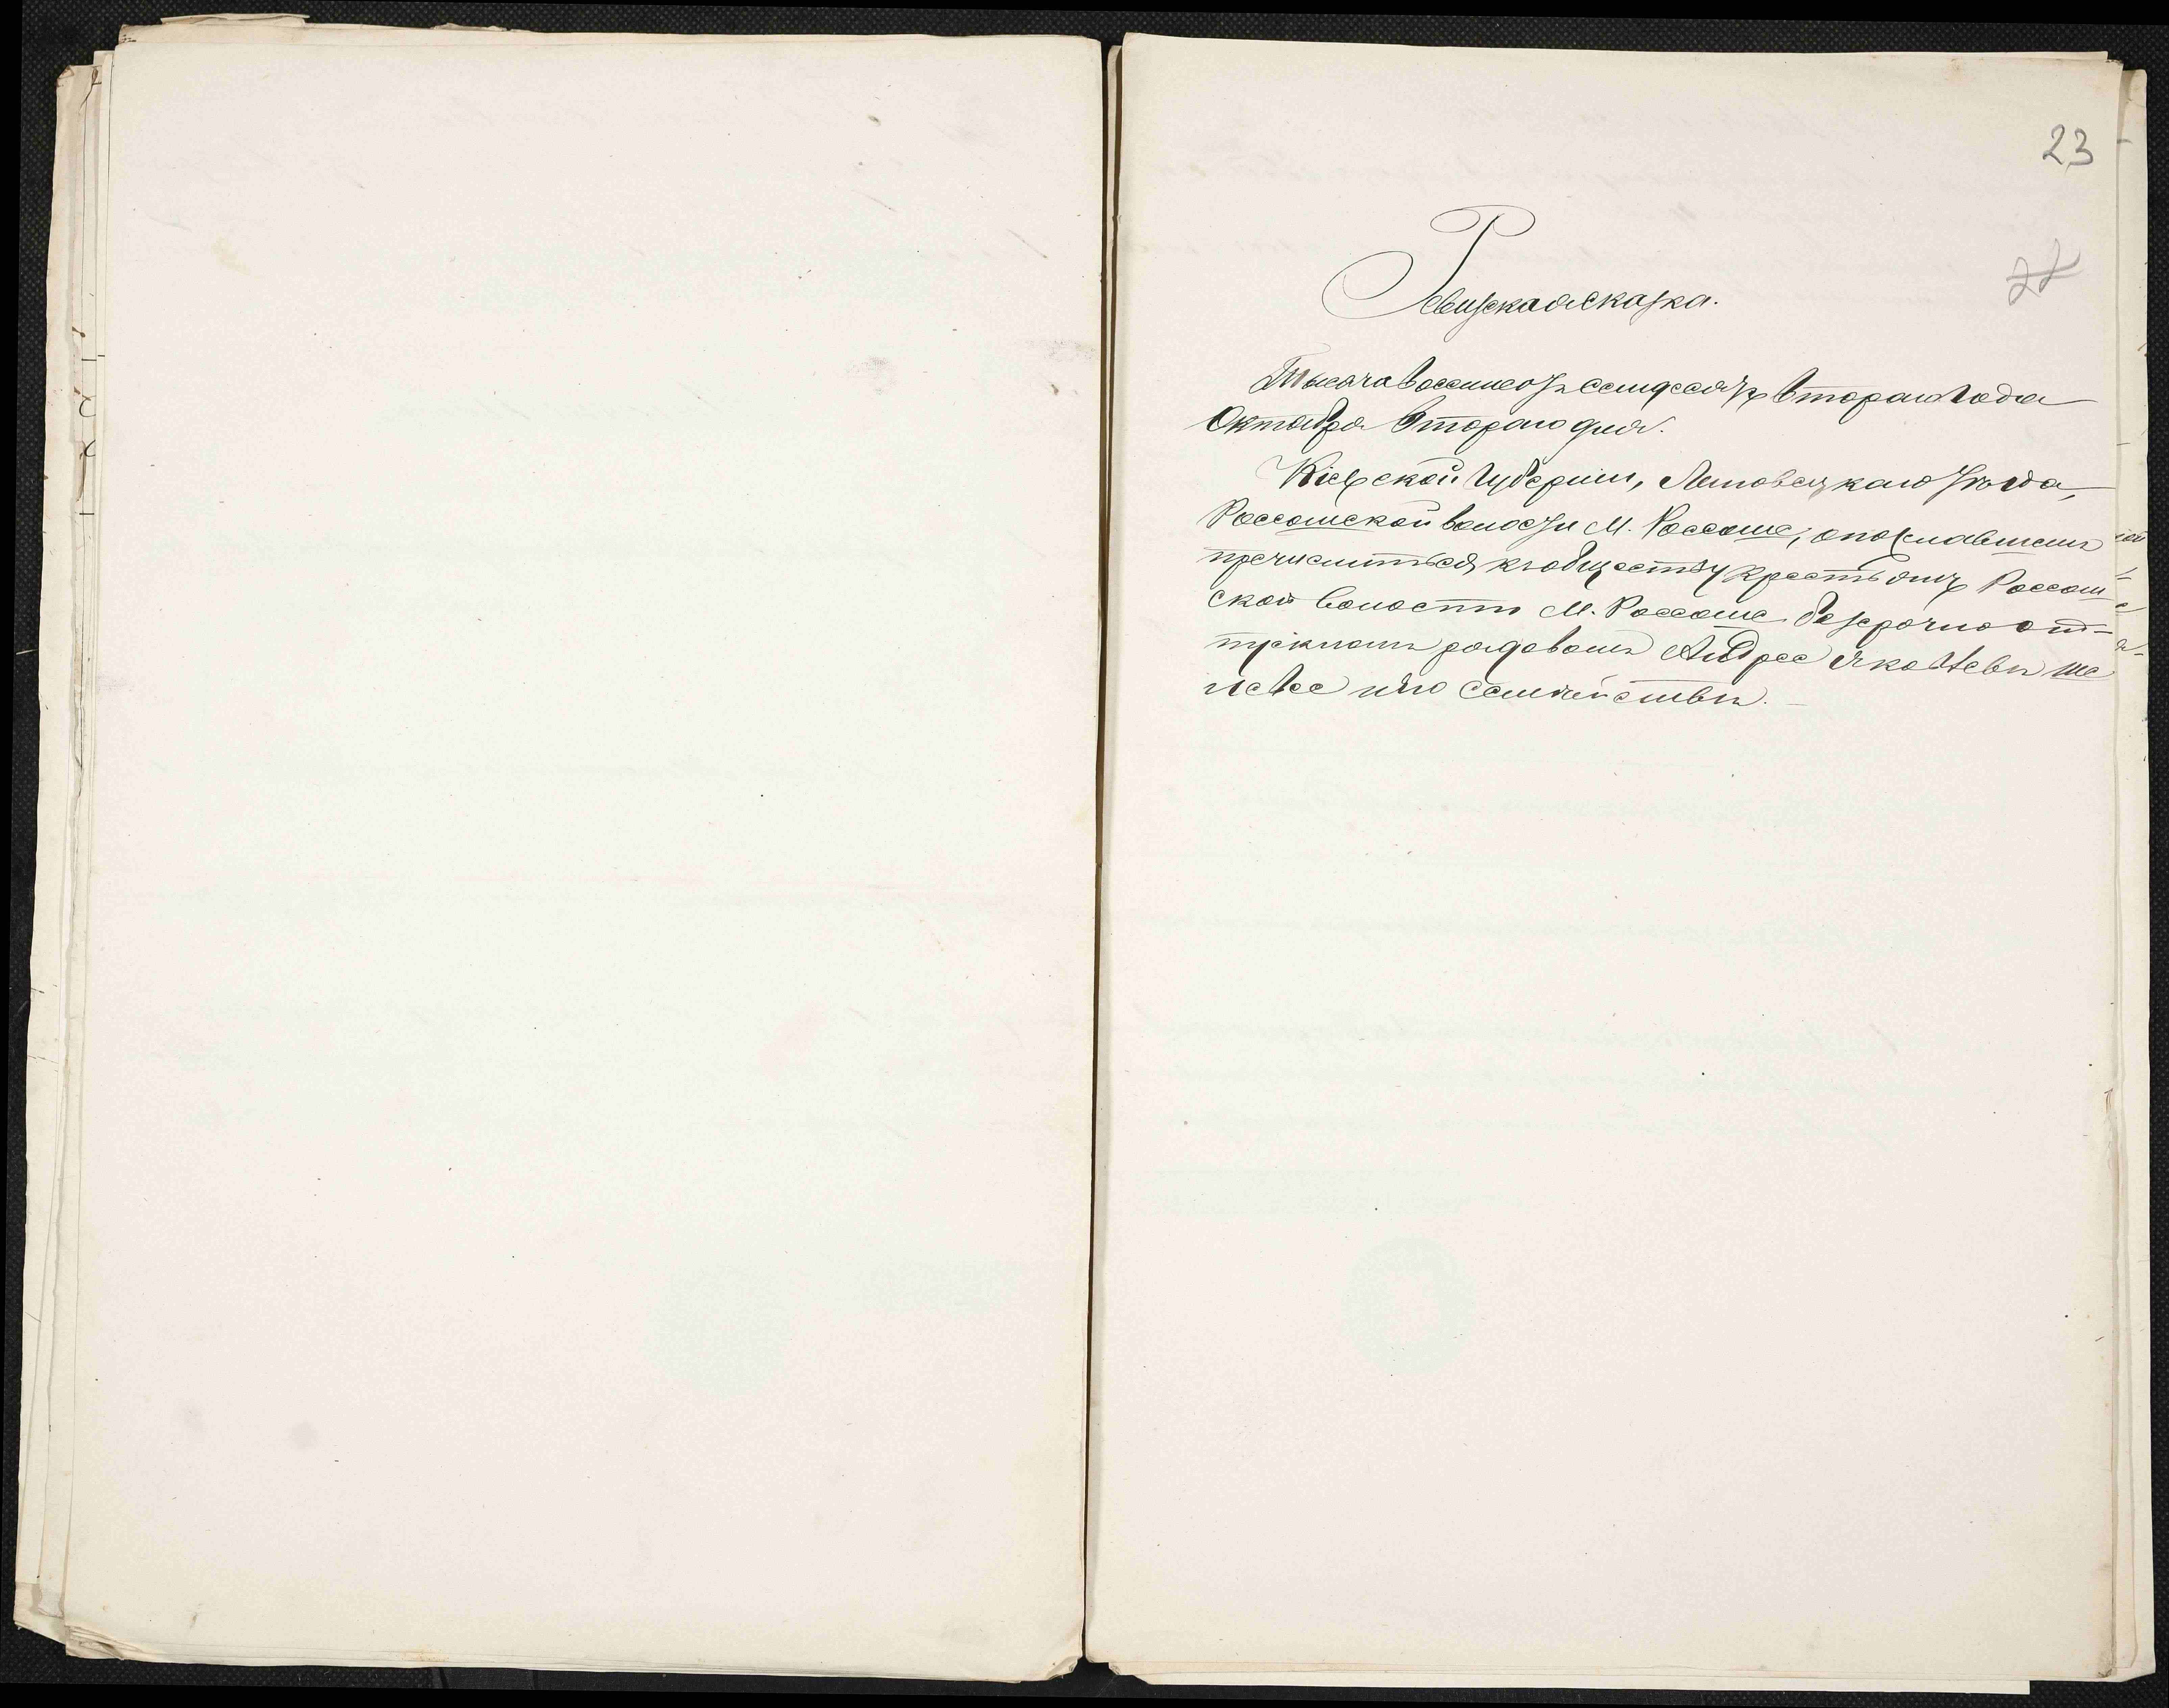 23
22
Ревизская сказка.
Тысяча восемсотъ семдесятъ втораго года
Октября Втораго дня.
Кіевской Губерніи, Липовецкаго уѣзда,
Россошской волости М. Россоше, о пожелавшемъ
причислиться къ обществу крестьянъ Россош
ской волости М. Россоше безсрочно от-
пускномъ рядовомъ Андрее Яковлевѣ Ше
и его семействѣ.